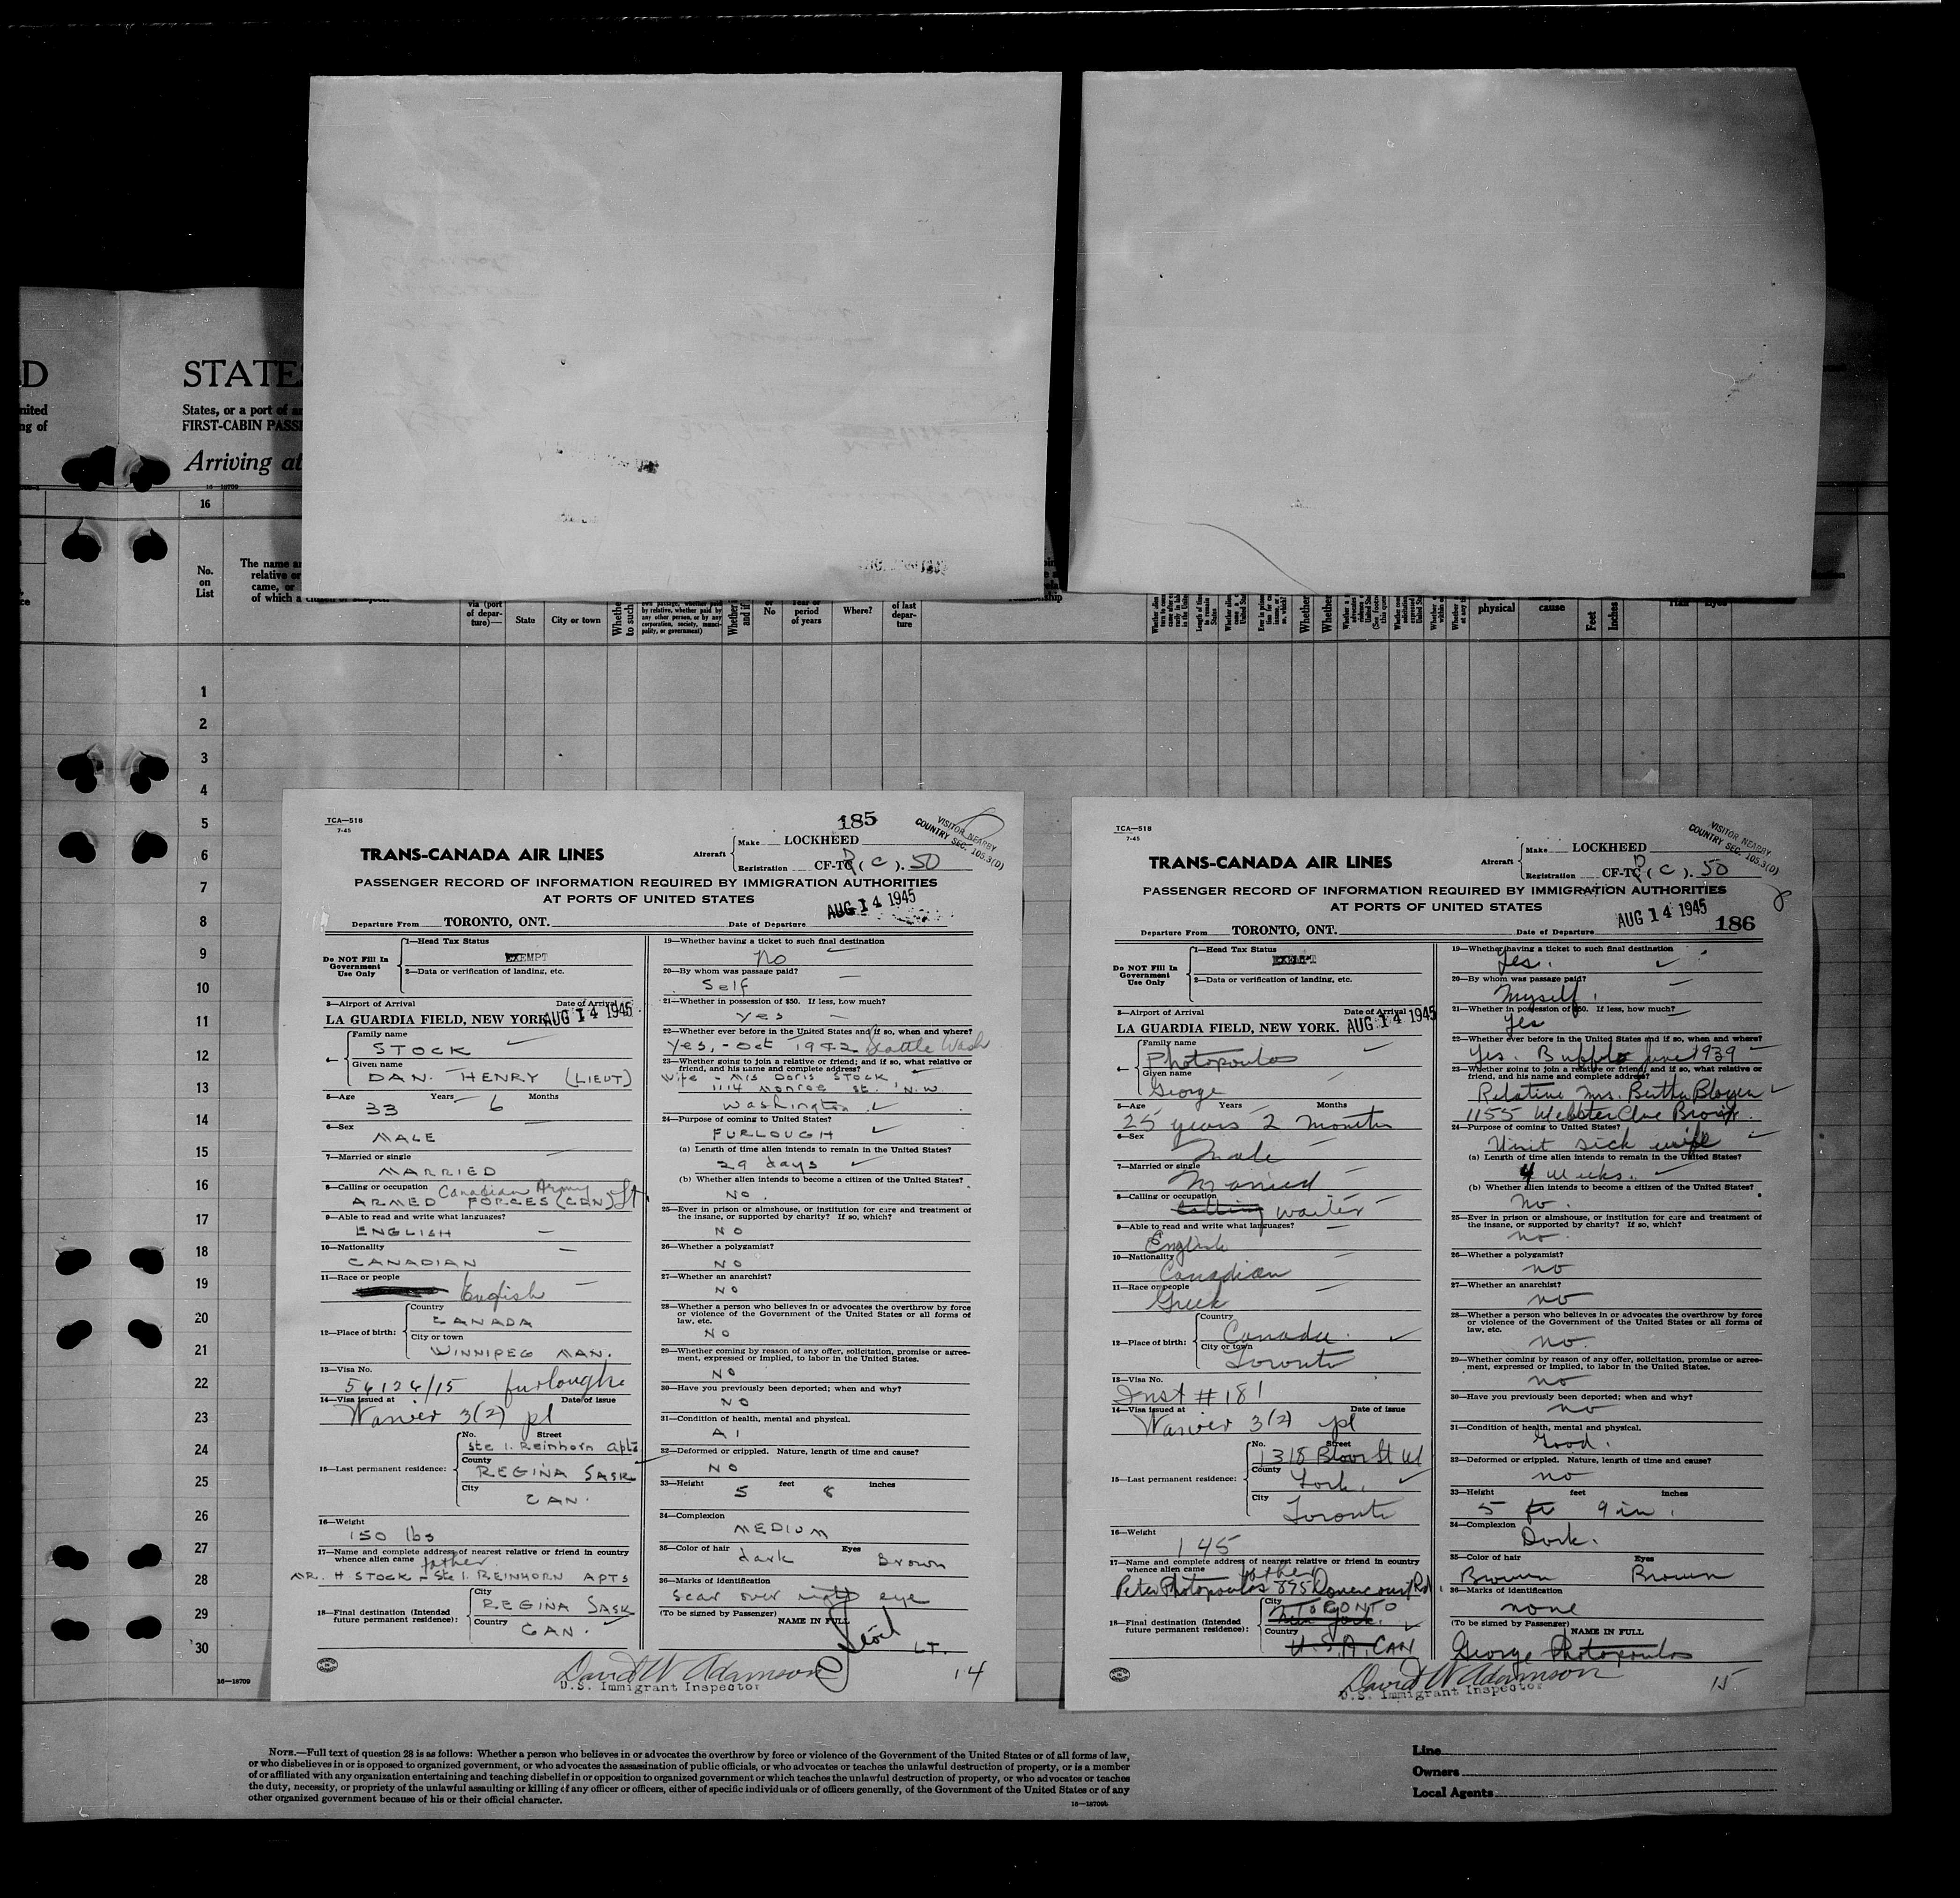 D
STATES
nited
ng of
States, or a port of
FIRST-CABIN PASS
Arriving at
16—18709
16
No.
on
List
The name
relative or
came, or
of which a
via (port
of depar-
ture)—
State
City or town
Whether
to such
by relative, whether paid by
any other person, or by any
corporation, society, munici-
pality, or government)
Whether
and if
or
No
Year or
period
of years
Where?
of last
depar-
ture
physical
cause
Feet
Inches
1
2
3
4
5
6
7
8
9
10
11
12
13
14
15
16
17
18
19
20
21
22
23
24
25
26
27
28
29
30
16—18709
TCA—518
7-45
185
VISITOR NEARBY
COUNTRY SEC. 105.3(D)
TRANS-CANADA AIR LINES
Aircraft
Make LOCKHEED
Registration CF-TC (C). 50
PASSENGER RECORD OF INFORMATION REQUIRED BY IMMIGRATION AUTHORITIES
AT PORTS OF UNITED STATES
AUG 14 1945
Departure From TORONTO, ONT. Date of Departure
Do NOT Fill In
Government
Use Only
1—Head Tax Status
EXEMPT
2—Data or verification of landing, etc.
3—Airport of Arrival Date of Arrival
LA GUARDIA FIELD, NEW YORK. AUG 14 1945
4—
Family name
STOCK
Given name
DAN. HENRY (LIEUT)
5—Age Years Months
33 6
6—Sex
MALE
7—Married or single
MARRIED
8—Calling or occupation Canadian Army
ARMED FORCES (CDN) Lt
9—Able to read and write what languages?
ENGLISH
10—Nationality
CANADIAN
11—Race or people
English
12—Place of birth:
Country
CANADA
City or town
WINNIPEG MAN.
13—Visa No.
56126/15 furlough
14—Visa issued at Date of issue
Waiver 3(2) pl
15—Last permanent residence:
No. Street
Ste 1. Reinhorn Apts
County
REGINA SASK
City
CAN.
16—Weight
150 lbs
17—Name and complete address of nearest relative or friend in country
whence alien came father
MR. H. STOCK - Ste 1. REINHORN APTS
18—Final destination (Intended
future permanent residence):
City
REGINA SASK
Country
CAN.
19—Whether having a ticket to such final destination
No
20—By whom was passage paid?
Self
21—Whether in possession of $50. If less, how much?
yes
22—Whether ever before in the United States and if so, when and where?
Yes, - Oct 1942 Seattle Wash
23—Whether going to join a relative or friend; and if so, what relative or
friend, and his name and complete address?
Wife - Mrs Doris STOCK
1114 Monroe St. N.W
Washington
24—Purpose of coming to United States?
FURLOUGH
(a) Length of time alien intends to remain in the United States?
29 days
(b) Whether alien intends to become a citizen of the United States?
NO.
25—Ever in prison or almshouse, or institution for care and treatment of
the insane, or supported by charity? If so, which?
NO
26—Whether a polygamist?
NO
27—Whether an anarchist?
NO
28—Whether a person who believes in or advocates the overthrow by force
or violence of the Government of the United States or all forms of
law, etc.
NO
29—Whether coming by reason of any offer, solicitation, promise or agree-
ment, expressed or implied, to labor in the United States.
NO
30—Have you previously been deported; when and why?
NO
31—Condition of health, mental and physical.
A1
32—Deformed or crippled. Nature, length of time and cause?
NO
33—Height feet inches
5 8
34—Complexion
MEDIUM
35—Color of hair Eyes
dark Brown
36—Marks of identification
Scar over right eye
(To be signed by Passenger) NAME IN FULL
Stock LT.
David W Adamson
U.S. Immigrant Inspector
14
TCA—518
7-45
VISITOR NEARBY
COUNTRY SEC. 105.3(D)
TRANS-CANADA AIR LINES
Aircraft
Make LOCKHEED
Registration CF-TC (C). 50
PASSENGER RECORD OF INFORMATION REQUIRED BY IMMIGRATION AUTHORITIES
AT PORTS OF UNITED STATES
AUG 14 1945
186
Departure From TORONTO, ONT. Date of Departure
Do NOT Fill In
Government
Use Only
1—Head Tax Status
EXEMPT
2—Data or verification of landing, etc.
3—Airport of Arrival Date of Arrival
LA GUARDIA FIELD, NEW YORK. AUG 14 1945
4—
Family name
Photopoulos
Given name
George
5—Age Years Months
25 years 2 months
6—Sex
Male
7—Married or single
Married
8—Calling or occupation
waiter
9—Able to read and write what languages?
English
10—Nationality
Canadian
11—Race or people
Greek
12—Place of birth:
Country
Canada.
City or town
Toronto
13—Visa No.
Inst # 181
14—Visa issued at Date of issue
Waiver 3(2) pl
15—Last permanent residence:
No. Street
1318 Bloor St W
County
York.
City
Toronto
16—Weight
145
17—Name and complete address of nearest relative or friend in country
whence alien came father
Peter Photopoulos 895 Dovercourt Rd.
18—Final destination (Intended
future permanent residence):
City
TORONTO
New York.
Country
U.S.A. CAN
19—Whether having a ticket to such final destination
Yes.
20—By whom was passage paid?
Myself.
21—Whether in possession of $50. If less, how much?
Yes
22—Whether ever before in the United States and if so, when and where?
Yes. Buffalo June 1939
23—Whether going to join a relative or friend; and if so, what relative or
friend, and his name and complete address?
Relative Mrs. Bertha
1155 Webster Ave Bronx.
24—Purpose of coming to United States?
Visit sick wife
(a) Length of time alien intends to remain in the United States?
4 weeks.
(b) Whether alien intends to become a citizen of the United States?
No.
25—Ever in prison or almshouse, or institution for care and treatment of
the insane, or supported by charity? If so, which?
no.
26—Whether a polygamist?
no
27—Whether an anarchist?
no
28—Whether a person who believes in or advocates the overthrow by force
or violence of the Government of the United States or all forms of
law, etc.
no.
29—Whether coming by reason of any offer, solicitation, promise or agree-
ment, expressed or implied, to labor in the United States.
no
30—Have you previously been deported; when and why?
no
31—Condition of health, mental and physical.
Good.
32—Deformed or crippled. Nature, length of time and cause?
no
33—Height feet inches
5 ft 9 in.
34—Complexion
Dark.
35—Color of hair Eyes
Brown Brown
36—Marks of identification
none
(To be signed by Passenger) NAME IN FULL
George Photopoulos
David W Adamson
U.S. Immigrant Inspector
15
NOTE.—Full text of question 28 is as follows: Whether a person who believes in or advocates the overthrow by force or violence of the Government of the United States or of all forms of law,
or who disbelieves in or is opposed to organized government, or who advocates the assassination of public officials, or who advocates or teaches the unlawful destruction of property, or is a member
of or affiliated with any organization entertaining and teaching disbelief in or opposition to organized government or which teaches the unlawful destruction of property, or who advocates or teaches
the duty, necessity, or propriety of the unlawful assaulting or killing of any officer or officers, either of specific individuals or of officers generally, of the Government of the United States or of any
other organized government because of his or their official character.
16—18709b
Line
Owners
Local Agents